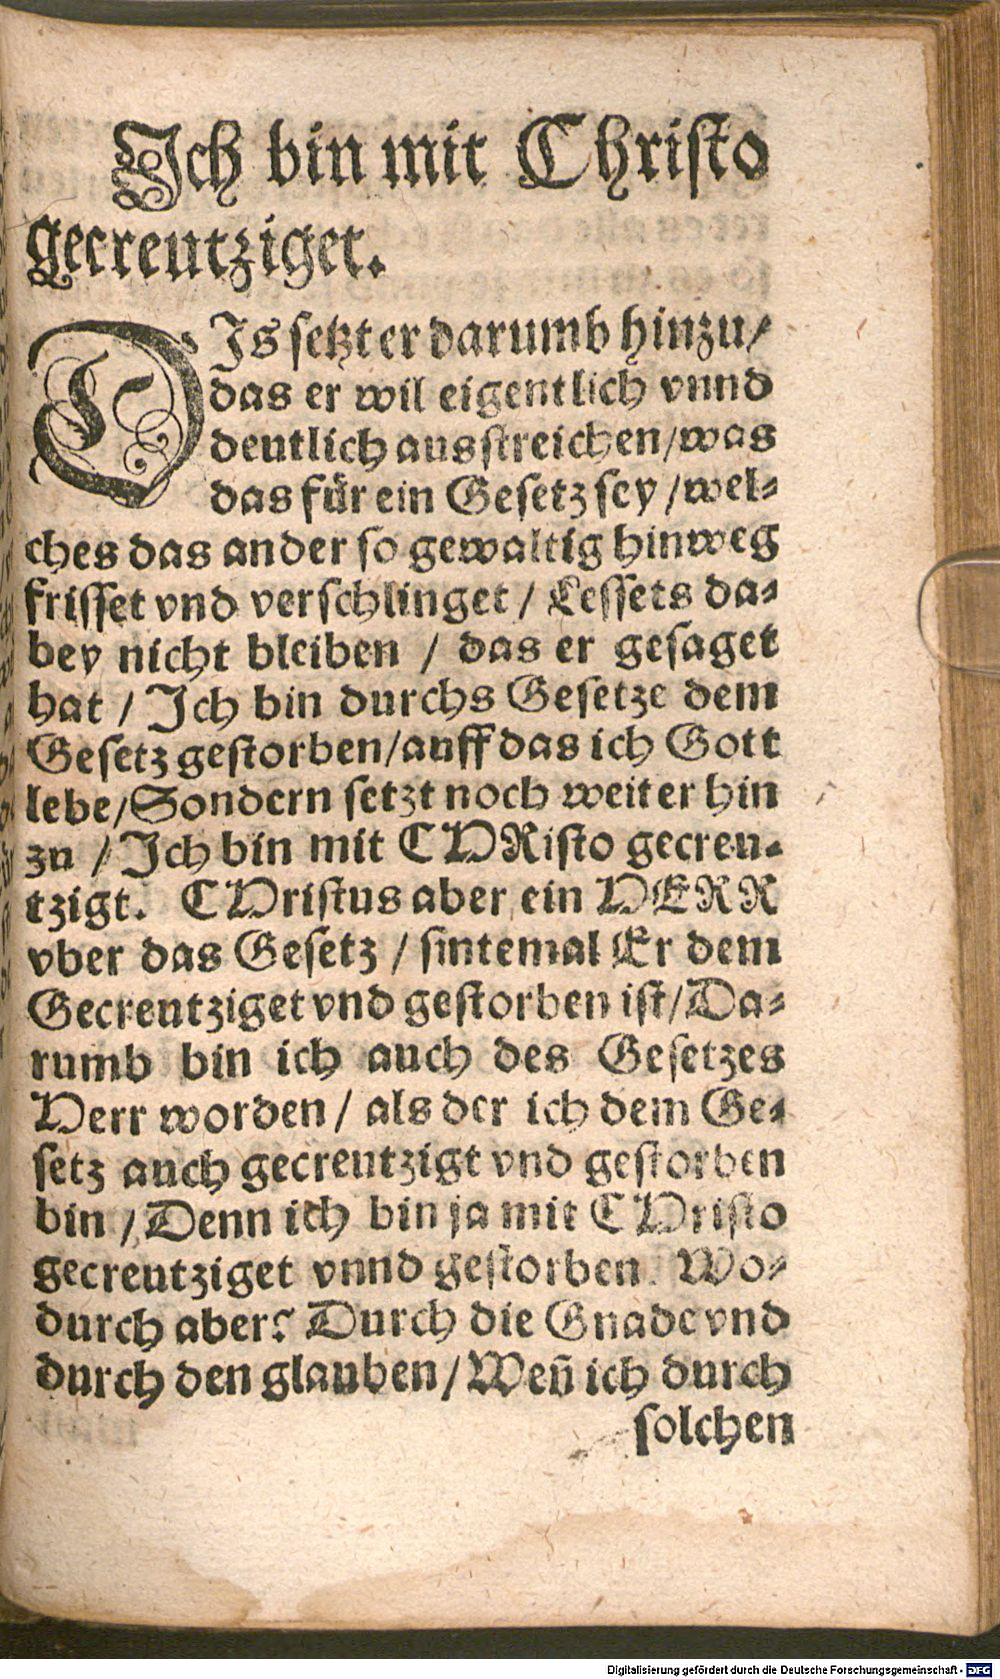 Ich bin mit Christo
gecreutziget.
DIs setzt er darumb hinzu/
das er wil eigentlich vnnd
deutlich ausstreichen/was
das für ein Gesetz sey/wel-
ches das ander so gewaltig hinweg
frisset vnd verschlinget / Lessets da-
bey nicht bleiben / das er gesaget
hat / Ich bin durchs Gesetze dem
Gesetz gestorben/auff das ich Gott
lebe/Sondern setzt noch weiter hin
zu / Ich bin mit CHRisto gecreu-
tzigt. CHristus aber ein HERR
vber das Gesetz / sintemal Er dem
Gecreutziget vnd gestorben ist/Da-
rumb bin ich auch des Gesetzes
Herr worden / als der ich dem Ge-
setz auch gecreutzigt vnd gestorben
bin / Denn ich bin ja mit CHristo
gecreutziget vnnd gestorben. Wo-
durch aber? Durch die Gnade vnd
durch den glauben/Weñ ich durch
solchen
Digitalisierung gefördert durch die Deutsche Forschungsgemeinschaft - DFG